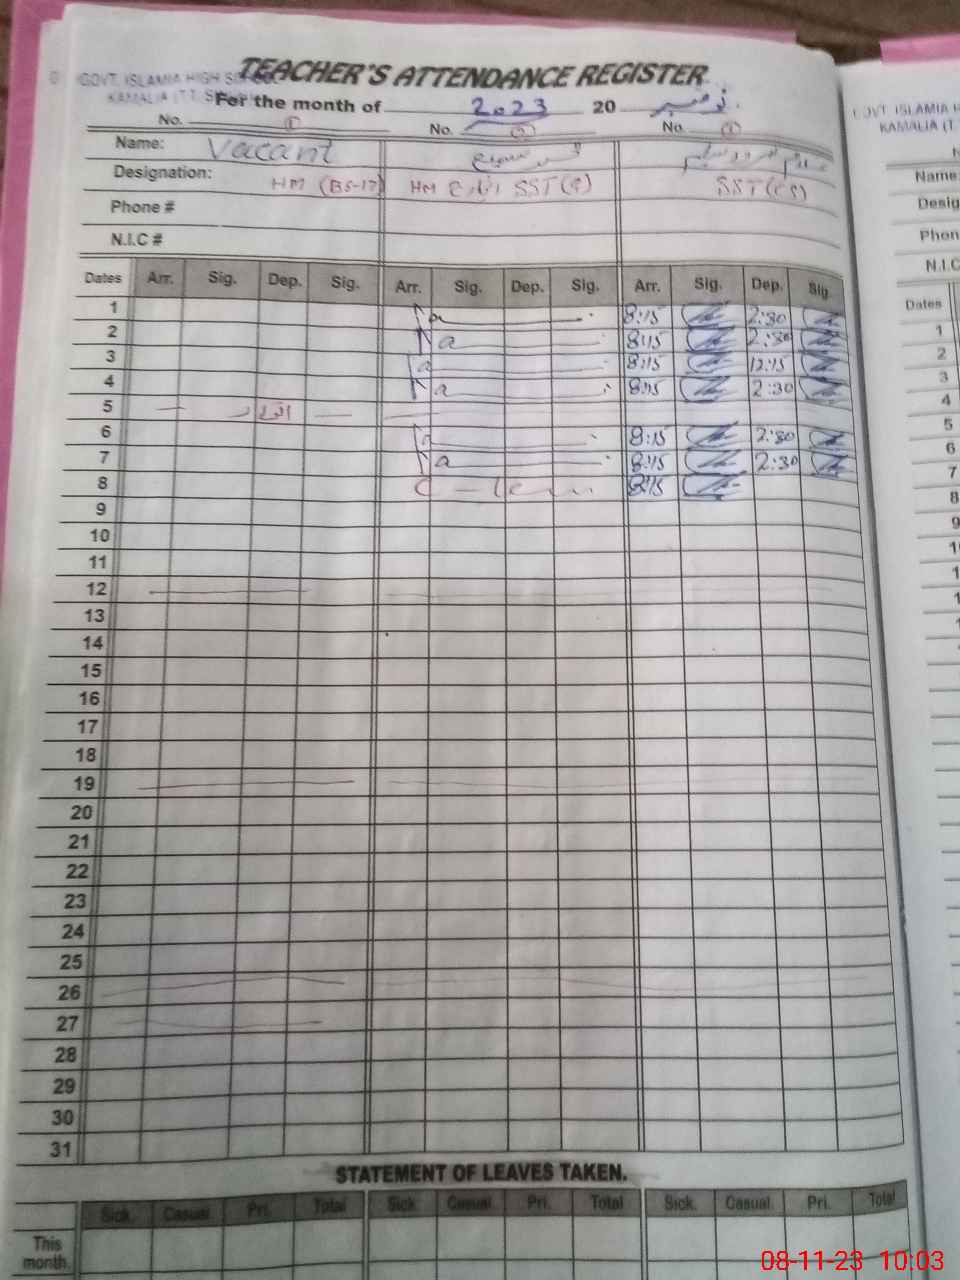 TEACHER'S ATTENDANCE REGISTER
GOVT. ISLAMIA HIGH
KAMALIA (T.T.
For the month of 2023 20 نومبر
No. 1 No. 2 No.
Name: Vacant
Designation: HM (BS-17) HM انچارج SST(
SST(
Phone #
N.I.C #
Dates Arr. Sig. Dep. Sig. Arr. Sig. Dep. Sig. Arr. Sig. Dep. Sig.
1 a 8:15 2:30
2 a 8:15 2:30
3 a 8:15 12:15
4 a 8:15 2:30
5 اتوار
6 a 8:15 2:30
7 a 8:15 2:30
8 8:15
9
10
11
12
13
14
15
16
17
18
19
20
21
22
23
24
25
26
27
28
29
30
31
STATEMENT OF LEAVES TAKEN.
Sick. Casual. Pri. Total Sick. Casual. Pri. Total Sick. Casual. Pri. Total
This
month.
OVT. ISLAMIA
KAMALIA (T.
Name
Desig
Phon
N.I.C
Dates
1
2
3
4
5
6
7
8
9
08-11-23 10:03